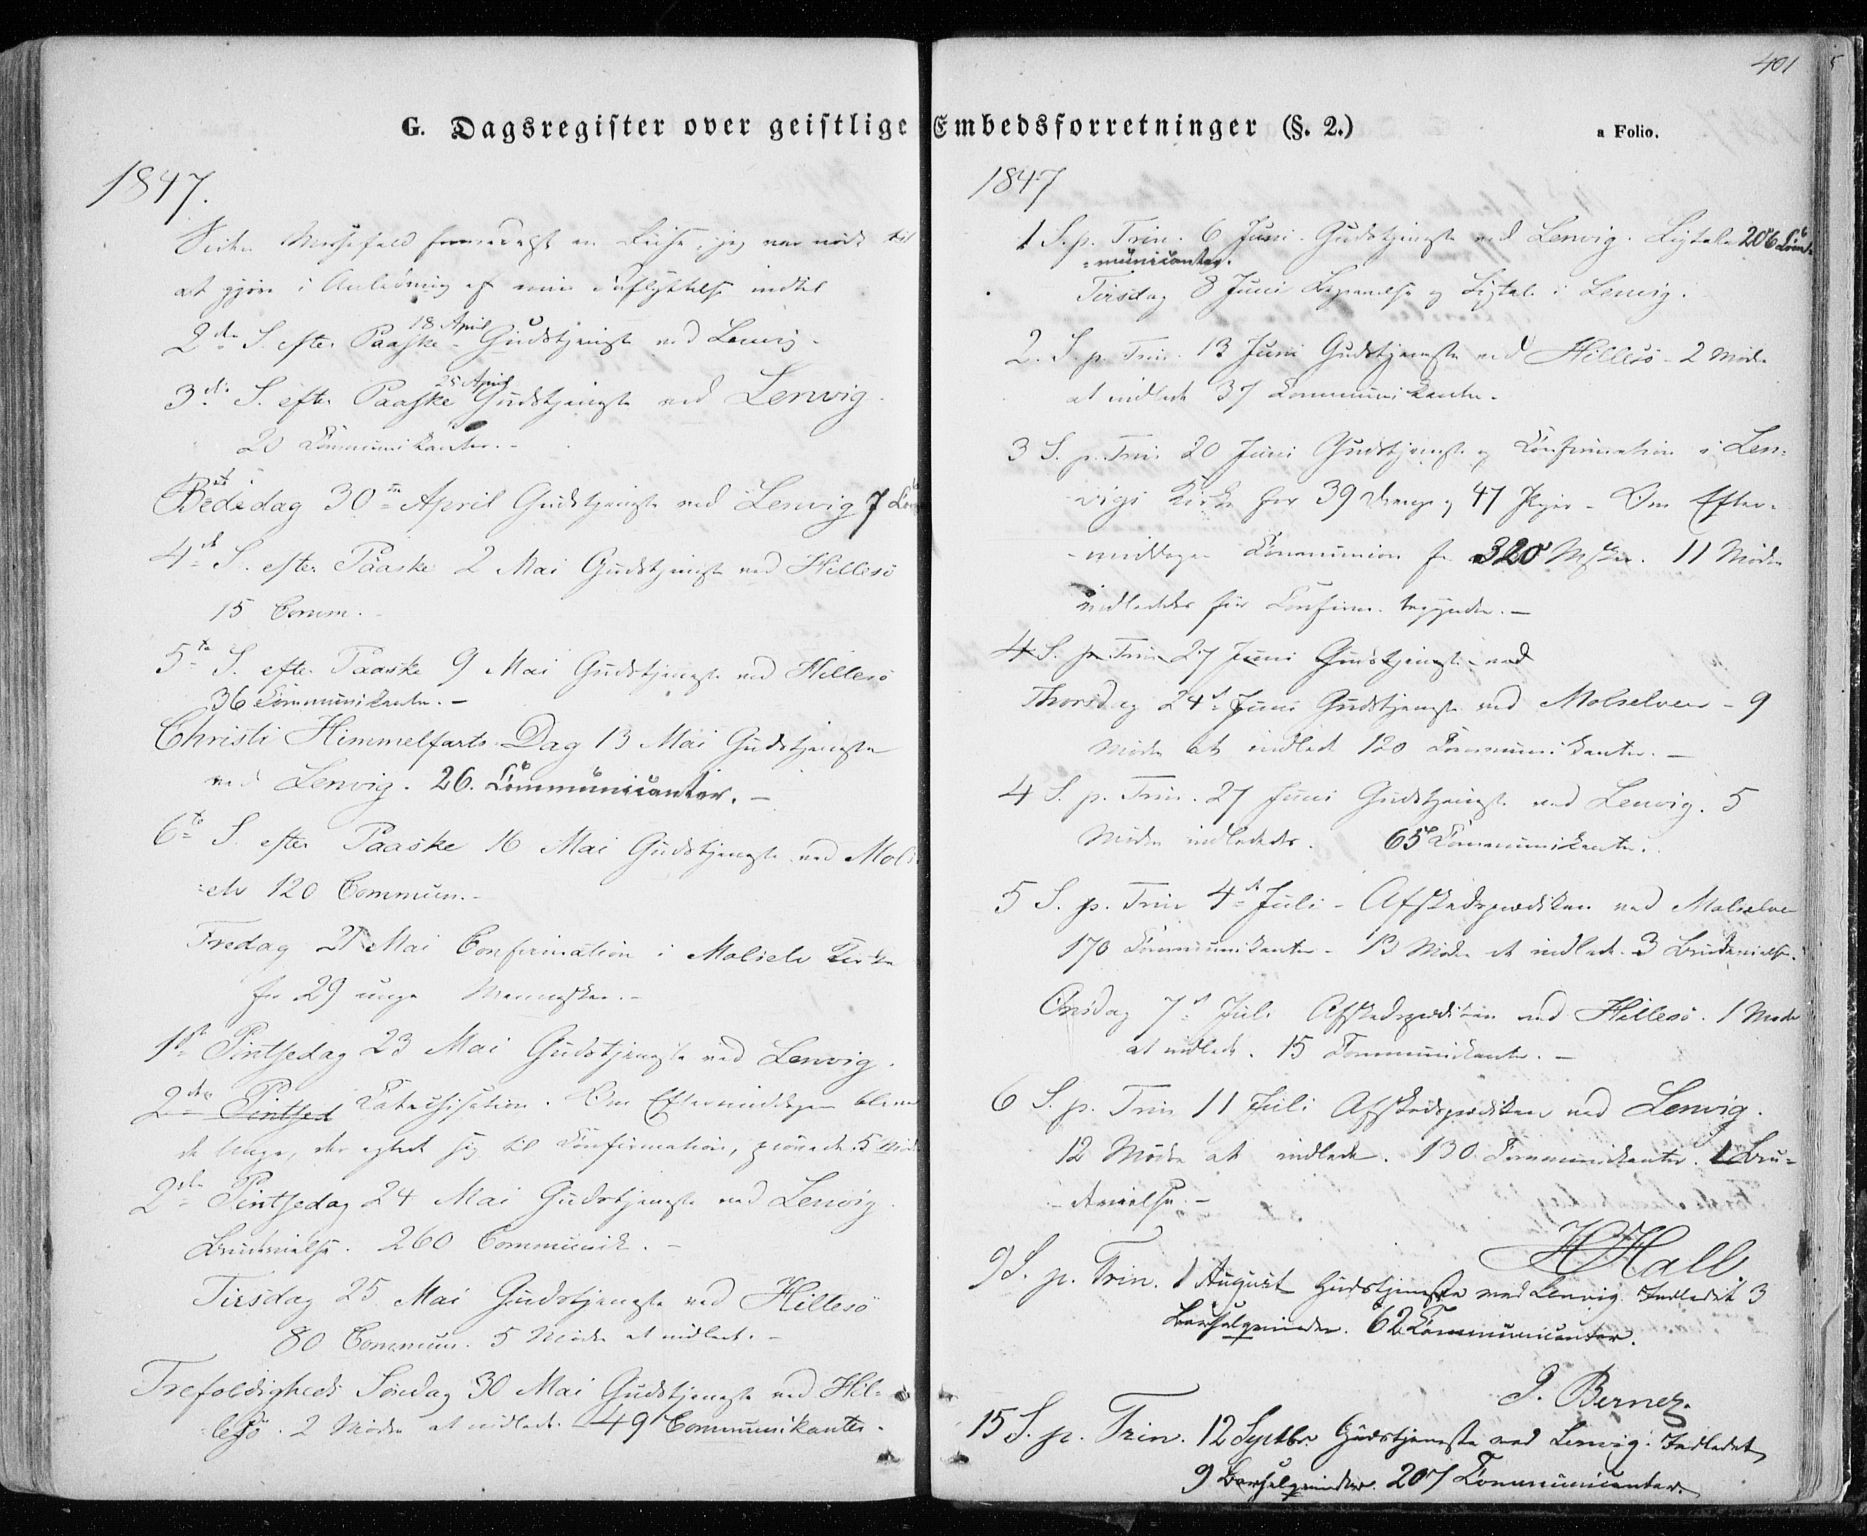 401
G. Dagsregister over geistlige Embedsforretninger (§. 2.)
a Folio.
1847.
en Reise, jeg var nødt til
at gjøre i Anledning af min Indflyttelse indtil
2den S. efter Paaske 18 April Gudstjeneste ved Lenvig.
3die S. efter Paaske 25 April Gudstjeneste ved Lenvig.
20 Communikanter.-
Bededag 30te April Gudstjeneste ved Lenvig 7 Com
4de S. efter Paaske 2 Mai Gudstjeneste ved Hillesø
15 Comm.
5te S. efter Paaske 9 Mai Gudstjeneste ved Hillesø
36 Communikanter.-
Christi Himmelfarts Dag 13 Mai Gudstjeneste
ved Lenvig. 26. Communicanter.-
6te S. efter Paaske 16 Mai Gudstjeneste ved Mols
elv 120 Commun.-
Fredag 21 Mai Confirmation i Molselv Kirke
for 29 unge Mennesker.-
1ste Pintsedag 23 Mai Gudstjeneste ved Lenvig.
2den Pintsed Catechisation. Om Eftermiddagen bleve
de Unge, der agted sig til Confirmation, prøvede. 5 Mødr
2den Pintsedag 24 Mai Gudstjeneste ved Lenvig
Brudevielse. 260 Communik.-
Tirsdag 25 Mai Gudstjeneste ved Hillesø
80 Commun. 5 Mødre at indlede.-
Trefoldigheds Søndag 30 Mai Gudstjeneste ved Hil-
lesø. 2 Mødre at indlede. 49 Communikanter.
1847
1 S. p. Trin. 6 Juni. Gudstjeneste ved Lenvig. Ligtale. 206 Com-
=municanter.
Tirsdag 8 Juni Begravelse og Ligtale i Lenvig.
2. S. p. Trin. 13 Juni Gudstjeneste ved Hillesø - 2 Mødre
at indlede 37 Communikanter.
3 S. p. Trin. 20 Juni Gudstjeneste og Confirmation i Len-
vigs Kirke for 39 Drenge og 47 Piger - Om Efter-
-middagen Communion for 320 Msker. 11 Mødre
indlededes før Confirm. begyndte.-
4 S. p. Trin 27 Juni Gudstjeneste ved
Thorsdag 24de Juni Gudstjeneste ved Molselven - 9
Mødre at indlede 120 Communikanter.-
4 S. p. Trin. 27 Juni Gudstjeneste ved Lenvig. 5
Mødre indlededes. 65 Communikanter.
5 S. p. Trin 4de Juli - Afskedsprædiken ved Molselven
170 Communikanter - 13 Mødre at indlede. 3 Brudevielser.
Onsdag 7de Juli Afskedsprædiken ved Hillesø. 1 Moder
at indlede. 15 Communikanter.-
6 S. p. Trin 11 Juli Afskedsprædiken ved Lenvig.
12 Mødre at indlede. 130 Communikanter. 1 Bru-
-devielse.-
H Hall
9 S. p. Trin. 1 August Gudstjeneste ved Lenvig Indledet 3
Barselqvinder. 62 Communicanter.
J. Berner.
15 S. p. Trin. 12 Septbr. Gudstjeneste ved Lenvig. Indledet
9 Barselqvinder. 207 Communicanter.